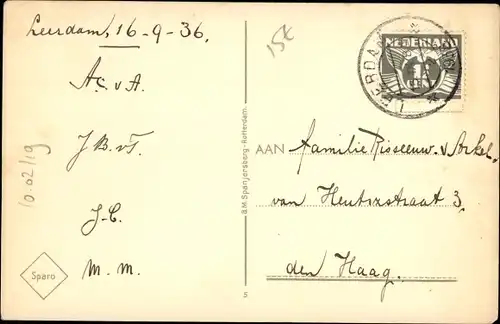 Leerdam, 16-9-36.
15€
NEDERLAND
1
CENT
Ac. v A.
J B. v T.
J-C.
M. M.
10.02/19
Sparo
B.M. Spanjersberg-Rotterdam.
5
AAN Familie Risseeuw. v Arkel.
van Heutszstraat 3
den Haag.